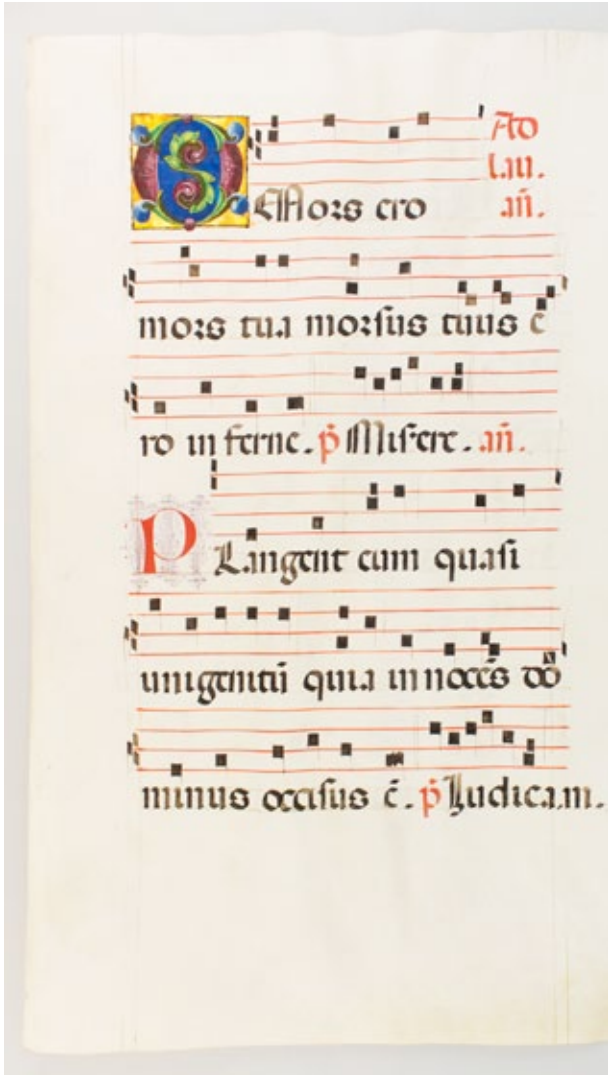 O Mors ero Ad
lau.
añ.
mors tua morſus tuus e
ro in ferne. p̃ Miſere. añ.
PLangent eum quaſi
unigenitū quia innocēs do
minus occiſus ē. p̃ Iudica.m.